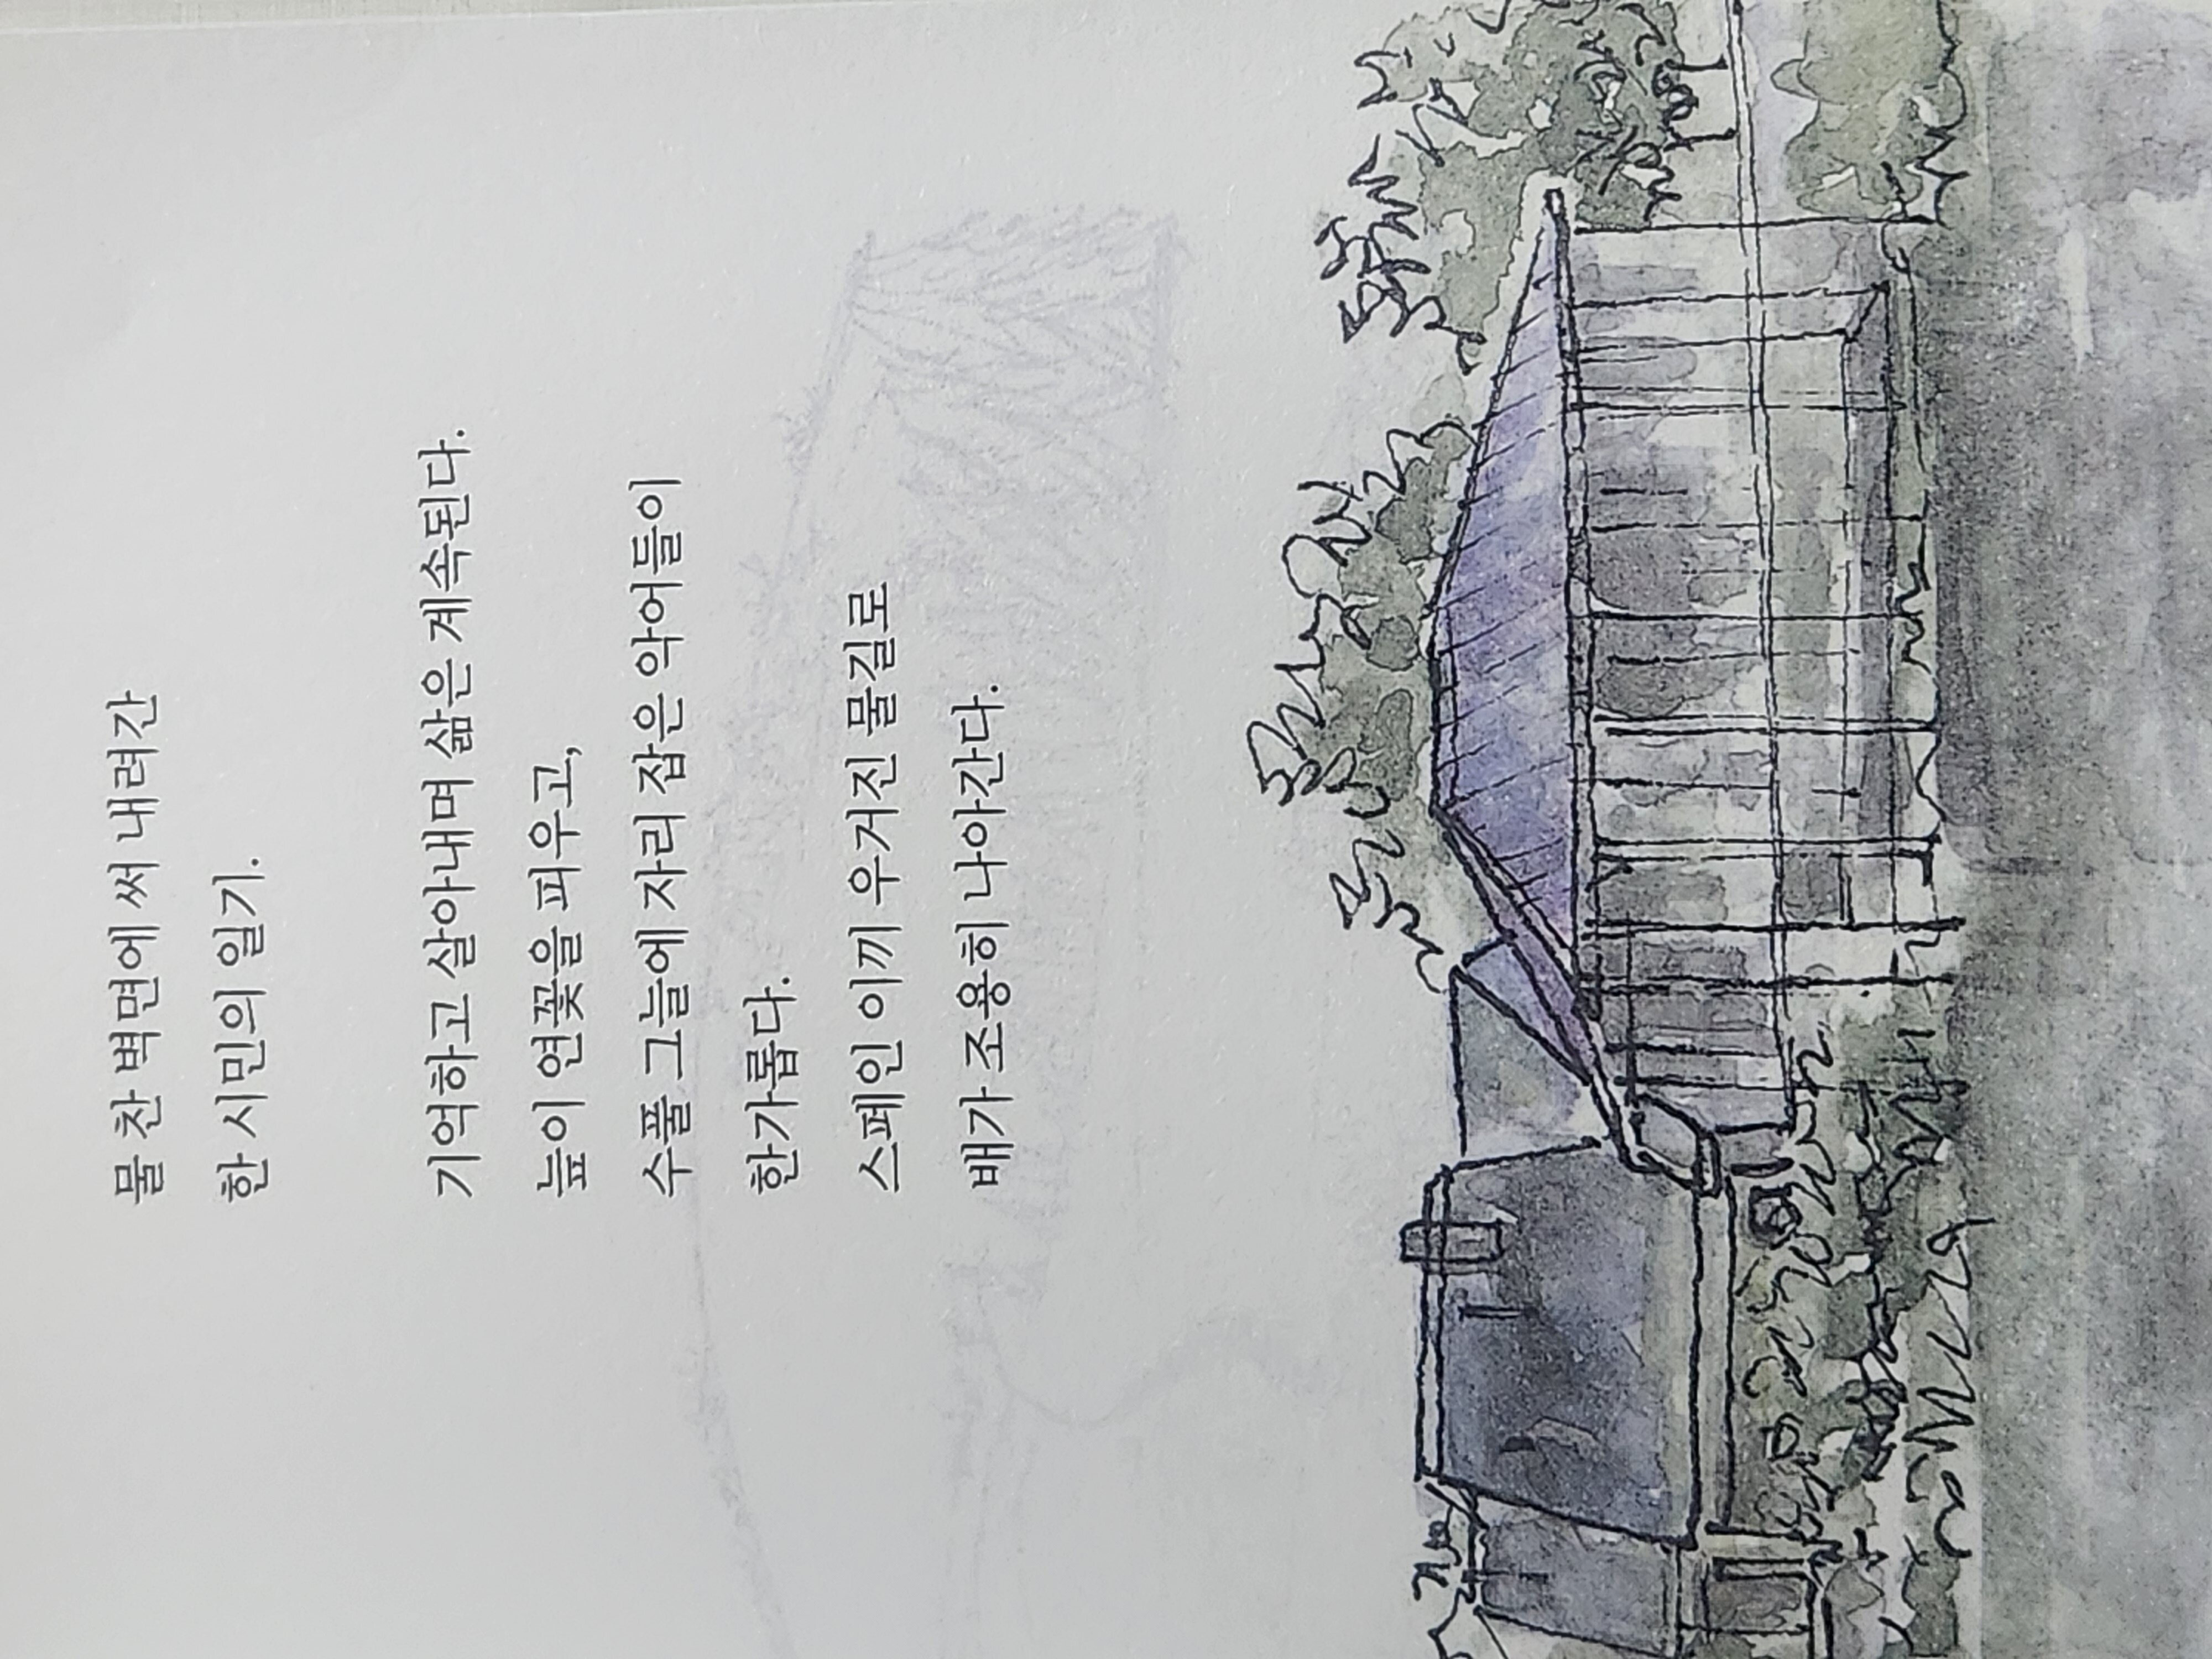 물 찬 벽면에 써 내려간
한 시민의 일기.
기억하고 살아내며 삶은 계속된다.
늪이 연꽃을 피우고,
수풀 그늘에 자리 잡은 악어들이
한가롭다.
스페인 이끼 우거진 물길로
배가 조용히 나아간다.